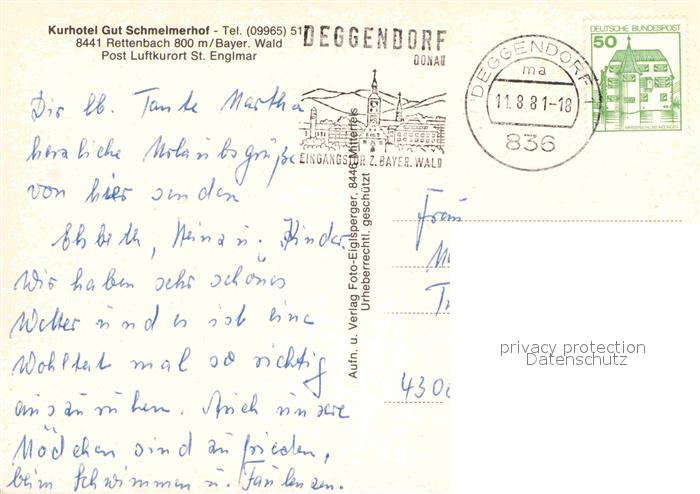 Kurhotel Gut Schmelmerhof - Tel. (09965) 51
8441 Rettenbach 800 m/Bayer. Wald
Post Luftkurort St. Englmar
DEGGENDORF
DONAU
EINGANGSTOR Z. BAYER. WALD
DEGGENDORF 1
ma
11.8.81-18
836
DEUTSCHE BUNDESPOST
50
Dir lb. Tante Martha
herzliche Urlaubsgrüße
von hier senden
Elsbeth, Heinz u. Kinder.
Wir haben sehr schönes
Wetter und es ist eine
Wohltat mal so richtig
auszuruhen. Auch unsere
Mädchen sind zufrieden,
beim Schwimmen u. Faulenzen.
Aufn. u. Verlag Foto-Eiglsperger, 8446 Mitterfels
Urheberrechtl. geschützt
Frau
430
privacy protection
Datenschutz